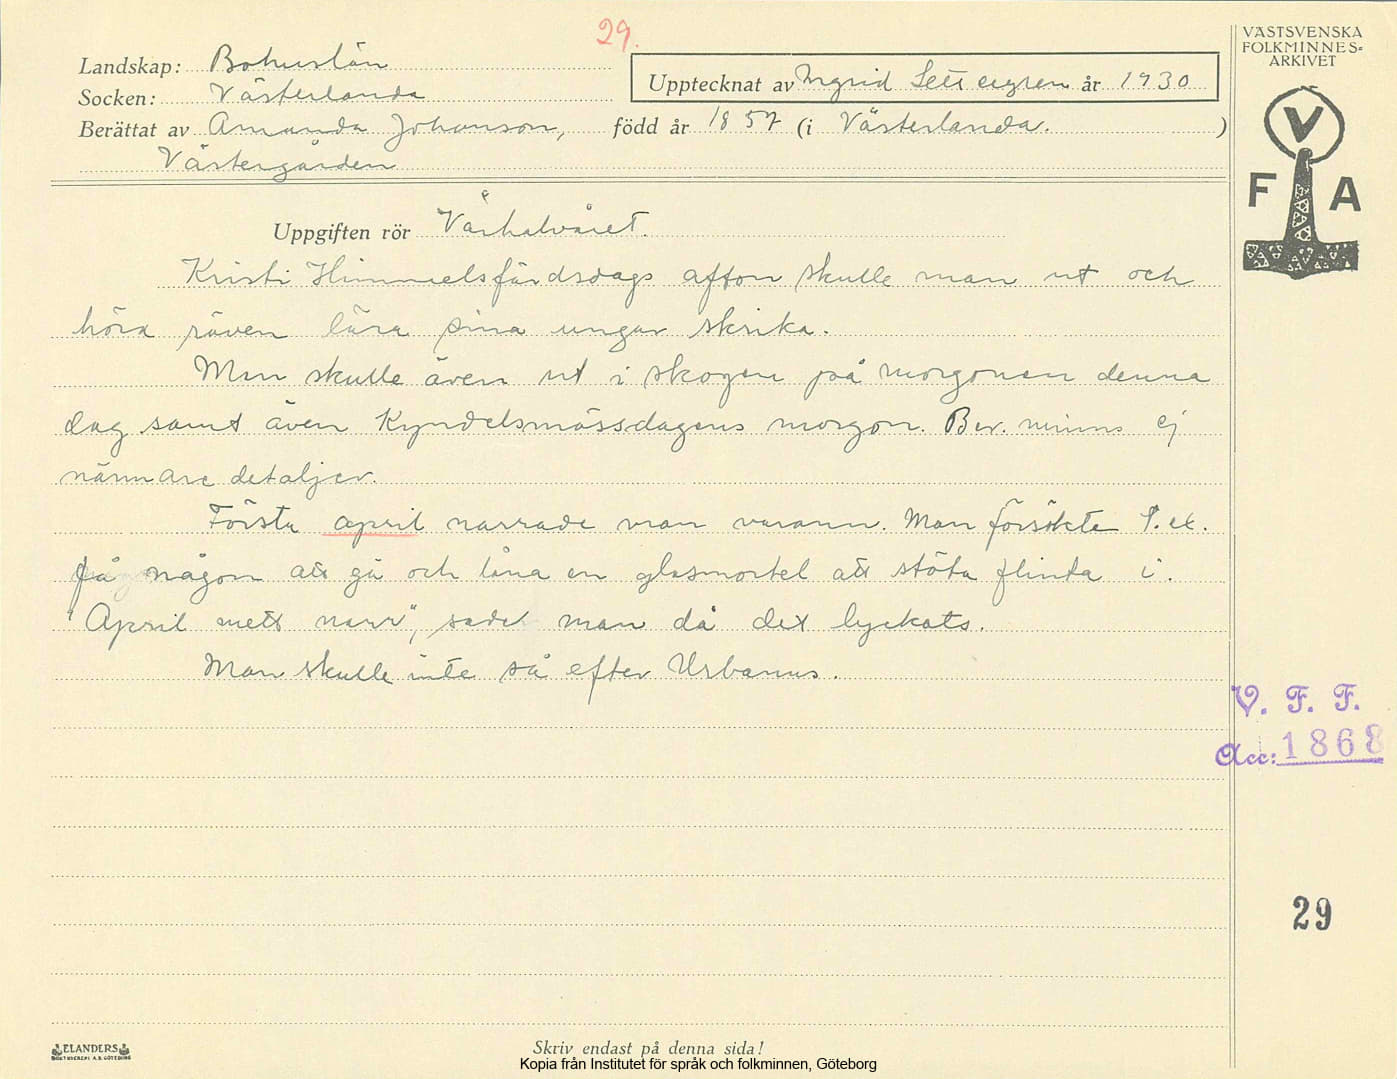 29.
VÄSTSVENSKA
FOLKMINNES=
ARKIVET
Landskap: Bohuslän
Socken: Västerlanda
Upptecknat av Ingrid år 1930
Berättat av Amanda Johanson, född år 1857 (i Västerlanda. )
Västergården
V
F A
Uppgiften rör Vårhalvåret.
Kristi Himmelsfärdsdags afton skulle man ut och
höra räven lära sina ungar skrika.
Man skulle även ut i skogen på morgonen denna
dag samt även Kyndelsmässdagens morgon. Ber. minns ej
närmare detaljer.
Första april narrade man varann. Man försökte t.ex.
få någon att gå och låna en glasmortel att stöta flinta i.
"April mett narr", sade man då det lyckats.
Man skulle inte så efter Urbanus.
V. F. F.
Acc: 1868
29
ELANDERS
BOKTRYCKERI A.B. GÖTEBORG
Skriv endast på denna sida!
Kopia från Institutet för språk och folkminnen, Göteborg